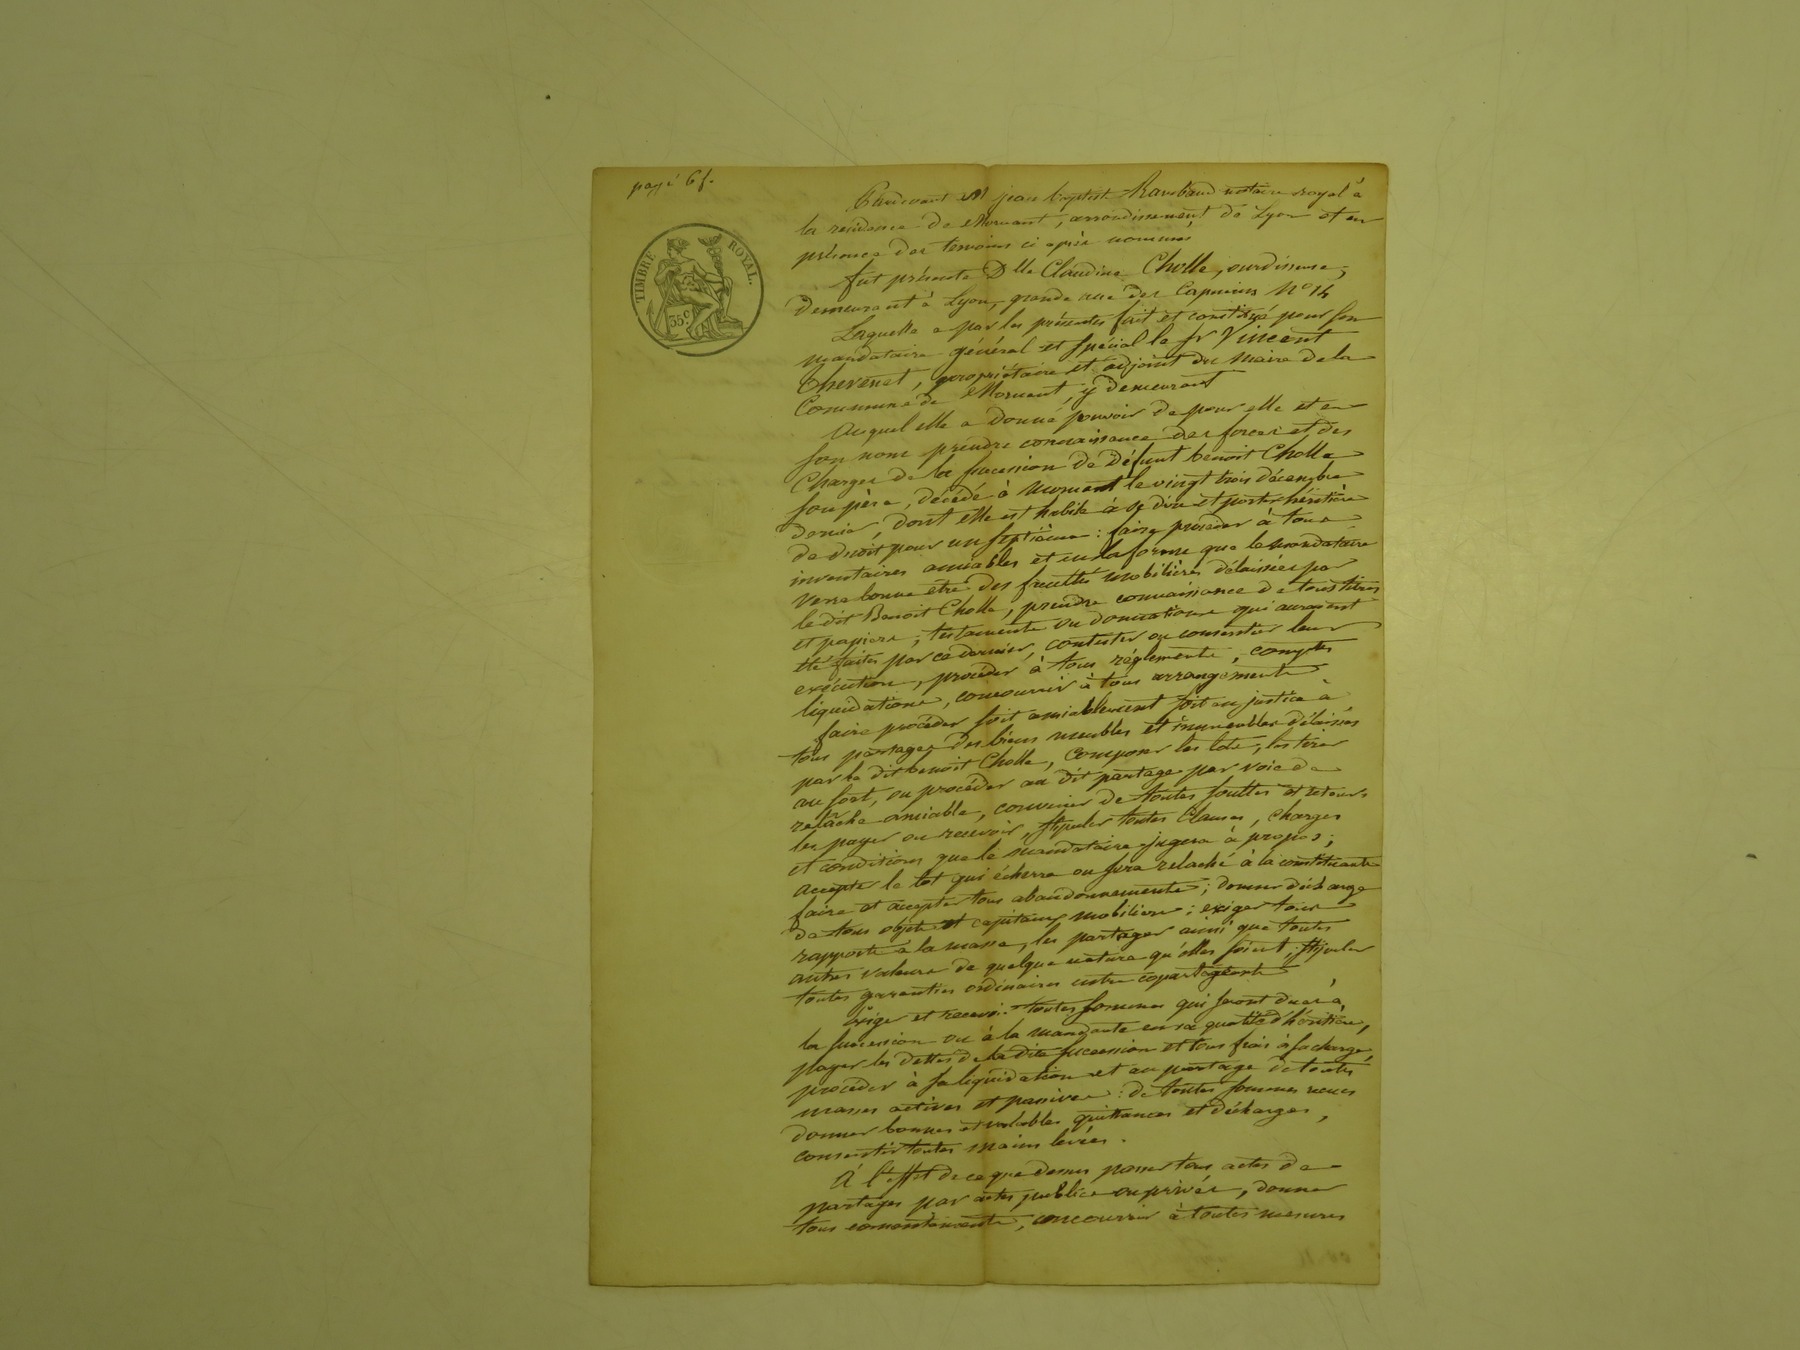 payé 6f.
TIMBRE ROYAL.
35 c
Pardevant Me jean baptiste Rambaud notaire royal à
la residence de Mornant, arrondissement de Lyon et en
présence des temoins ci après nommés
fut présente Dlle Claudine Cholle, ourdisseuse,
demeurant à Lyon, grande rue des Capucins No 14
Laquelle a par les présentes fait et constitué pour son
mandataire général et spécial le sr Vincent
Thevenet, propriétaire et adjoint du maire de la
Commune de Mornant, y demeurant
Auquel elle a donné pouvoir de pour elle et en
son nom prendre connaissance des forces et des
Charges de la succession de défunt benoit Cholle
son père, décédé à Mornant le vingt trois décembre
dernier, dont elle est habile à se dire et porter héritière
de droit pour un septième : faire procéder à tous
inventaires amiables et en la forme que le mandataire
verra bonne etre des facultés mobilières délaissées par
le dit Benoit Cholle, prendre connaissance de tous titres
et papiers, testaments ou donations qui auraient
été faites par ce dernier, contester ou consentir leur
exécution, procéder à tous réglements, comptes
liquidations, concourrir à tous arrangements
faire procéder soit amiablement soit en justice à
tous partages des biens meubles et immeubles délaissés
par le dit benoit Cholle, composer les lots, les tirer
au sort, ou procéder au dit partage par voie de
relâche amiable, convenir de toutes soultes et retours
les payer ou recevoir, stipuler toutes clauses, charges
et conditions que le mandataire jugera à propos ;
accepter le lot qui écherra ou sera relaché à la constituante
faire et accepter tous abandonnements ; donner décharge
de tous objets et capitaux mobiliers ; exiger tous
rapports à la masse, les partager ainsi que toutes
autres valeurs de quelque nature qu'elles soient, stipuler
toutes garanties ordinaires entre copartageants
Exiger et recevoir toutes sommes qui seront dues à
la succession ou à la mandante en sa qualité d'héritière,
payer les dettes de la dite succession et tous frais à sa charge,
procéder à sa liquidation et au partage de toutes
masses actives et passives : de toutes sommes reçues
donner bonnes et valables quittances et décharges,
consentir toutes main levées.
À l'effet de ce que dessus passer tous actes de
partages par actes publics ou privés, donner
tous consentements, concourrir à toutes mesures